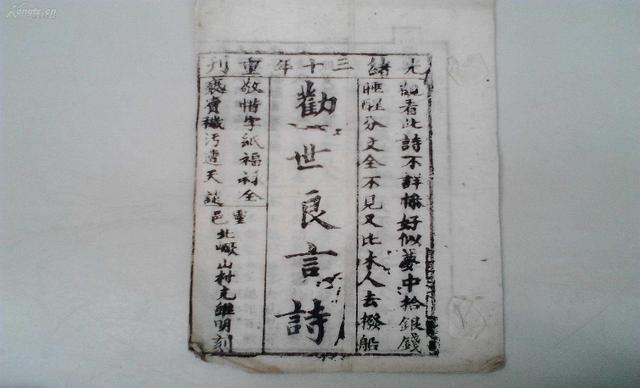 光緒三十年重刊
觀看此詩不詳條好似夢中拾銀錢
睡醒分文全不見又比木人去撥船
勸世良言詩
敬惜字紙福祿全
褻賣穢污遭天
邑北山村維明刻